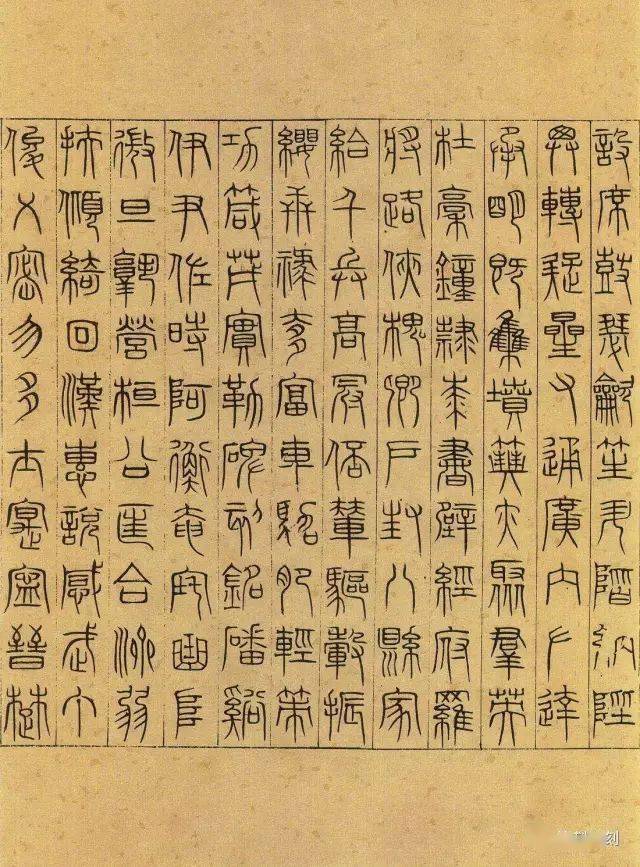 設席鼓瑟龡笙升階納陛
弁轉疑星右通廣內左達
承明既集墳亦聚羣英
杜稾鐘隸桼書壁經府羅
將路俠槐卿戶封八縣家
給千兵高冠陪輦驅轂振
纓世祿侈富車駕肥輕策
功茂實勒碑刻銘磻谿
伊尹佐時阿衡奄宅曲阜
微旦孰營桓公匡合濟弱
扶傾綺回漢惠說感武丁
俊乂密勿多士寔寧晉楚
刻